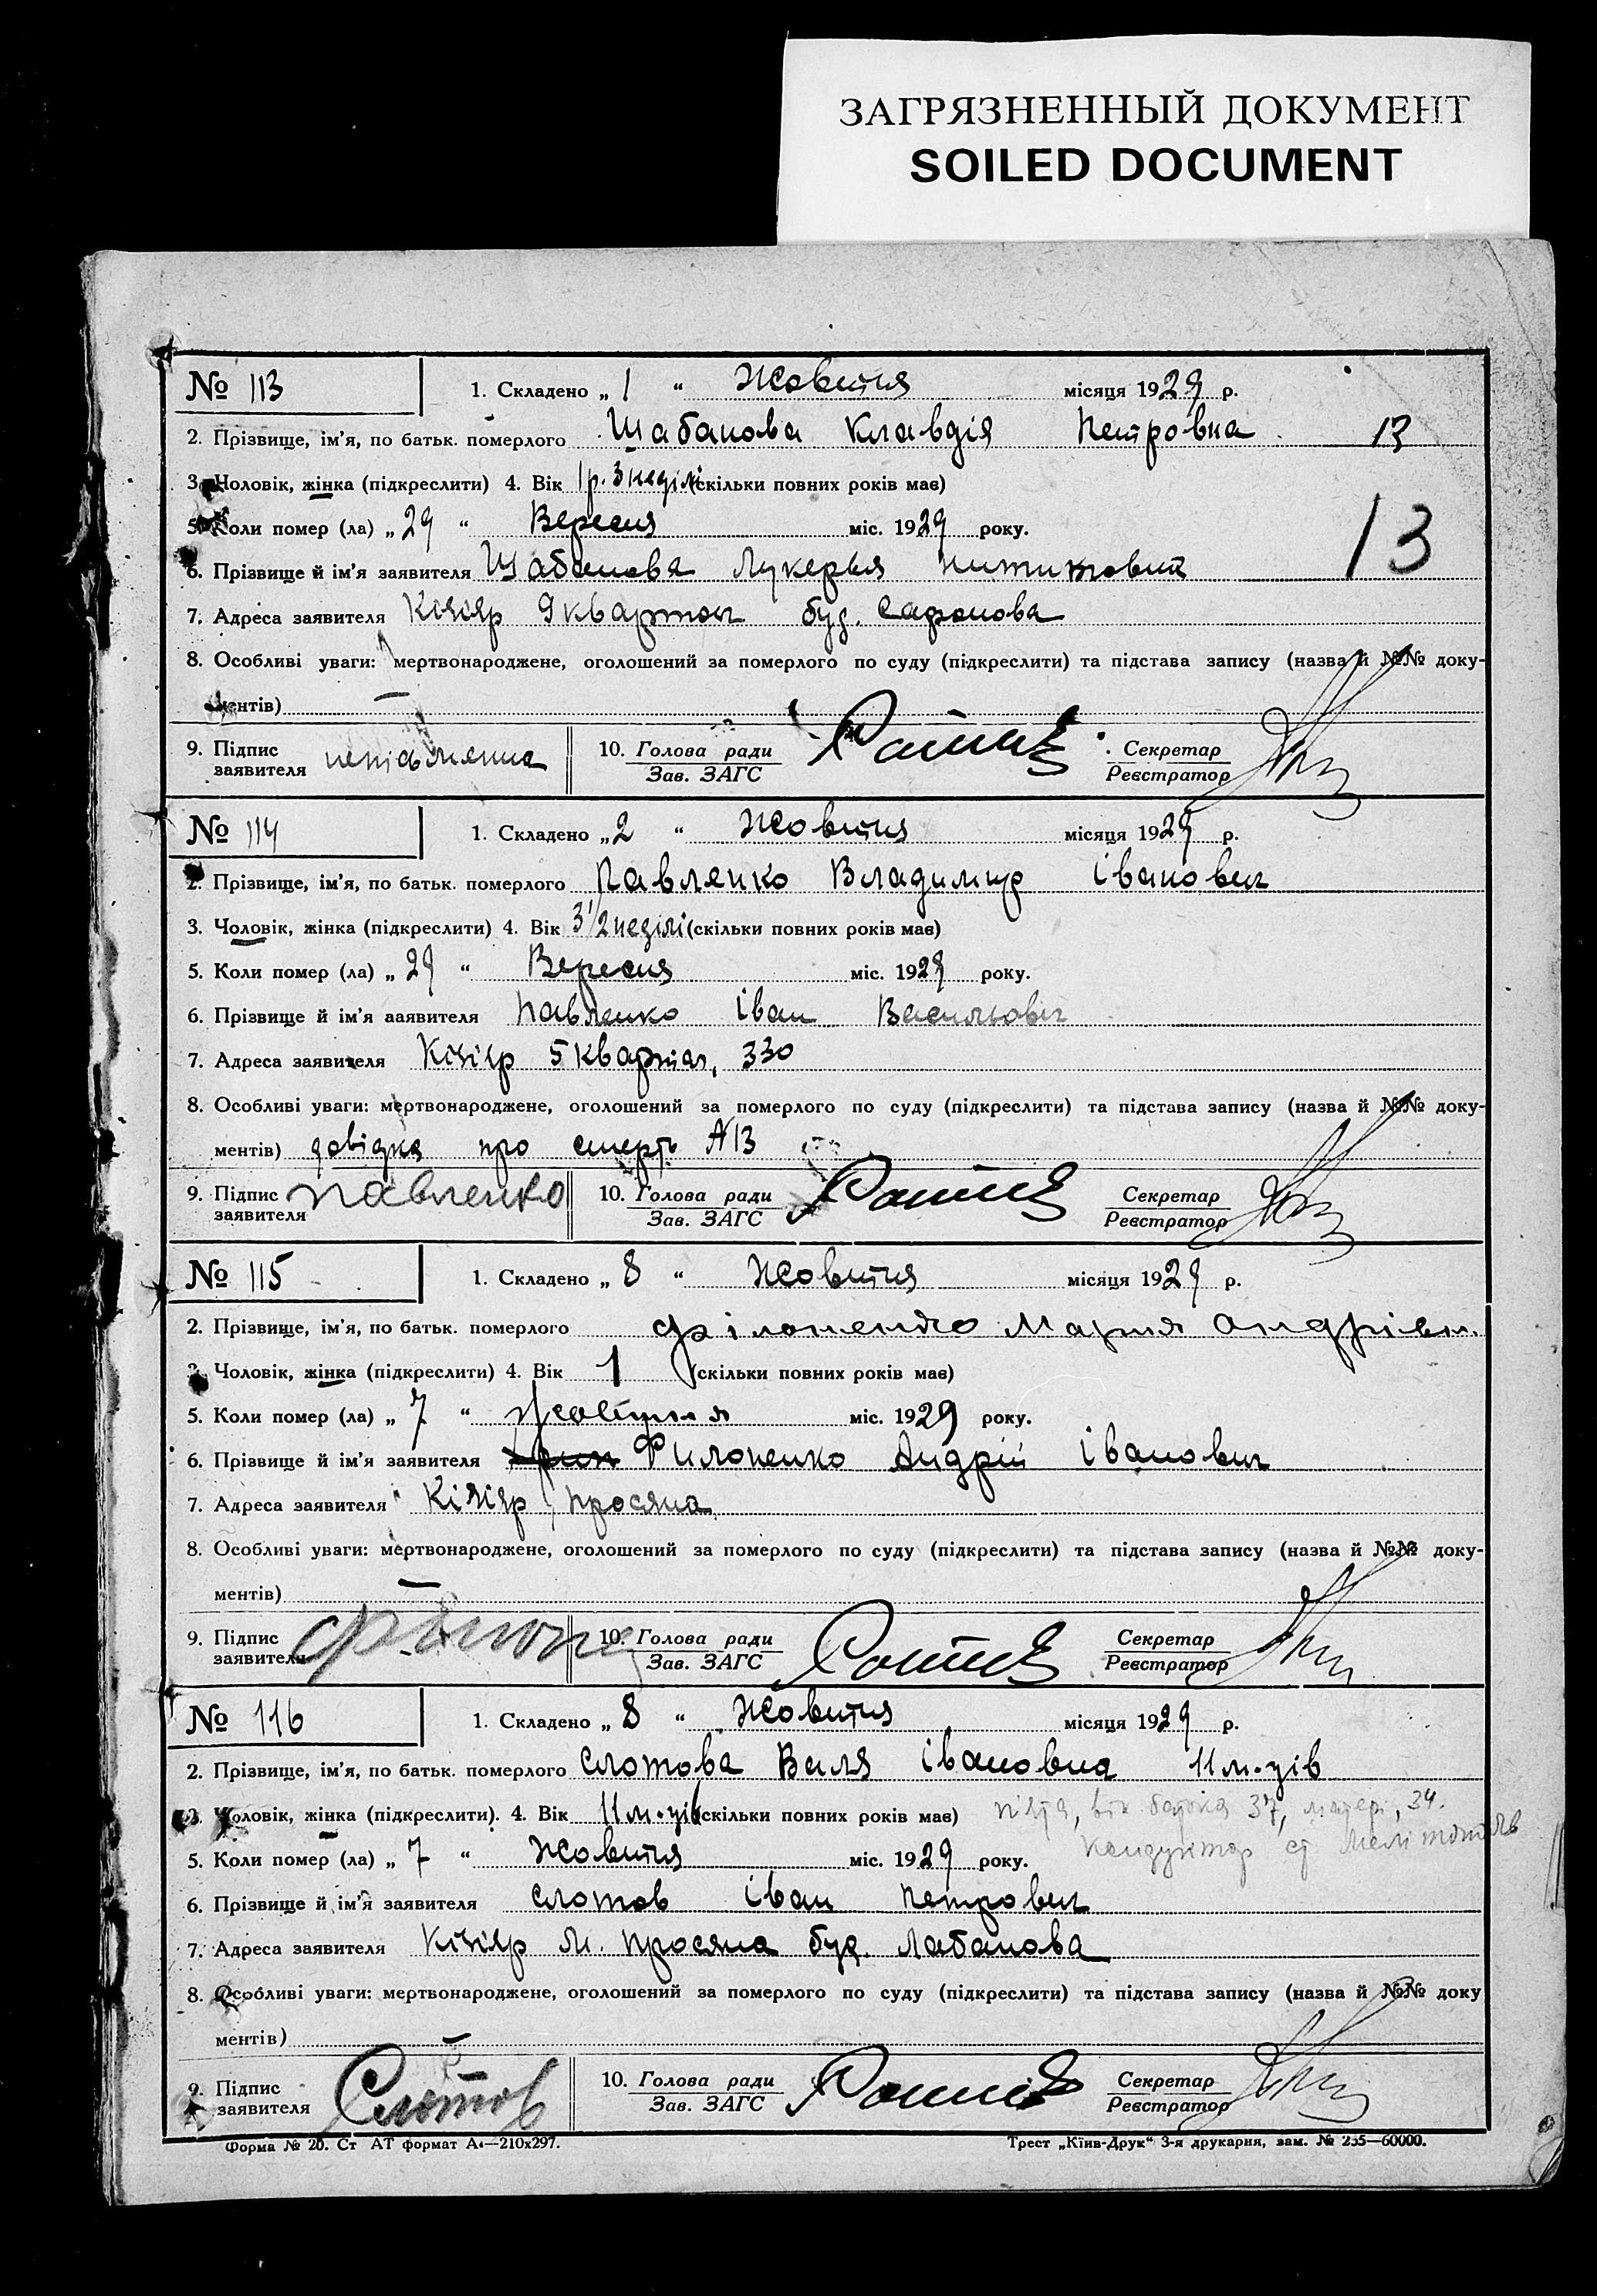 ЗАГРЯЗНЕННЫЙ ДОКУМЕНТ
SOILED DOCUMENT
№ 113 1. Складено „ 1 “ Жовтня місяця 1929 р.
2. Прізвище, ім'я, по батьк. померлого Шабанова Клавдія Петровна 13
3. Чоловік, жінка (підкреслити) 4. Вік 1 р. 3 неділі (скільки повних років має)
5. Коли помер (ла) „ 29 “ Вересня міс. 1929 року. 13
6. Прізвище й ім'я заявителя Шабанова Лукерья
7. Адреса заявителя Кізіяр 9 квартал буд. Сафонова
8. Особливі уваги: мертвонароджене, оголошений за померлого по суду (підкреслити) та підстава запису (назва й №№ доку-
ментів) —
9. Підпис заявителя неписьменна 10. Голова ради Зав. ЗАГС Секретар Реєстратор
№ 114 1. Складено „ 2 “ Жовтня місяця 1929 р.
2. Прізвище, ім'я, по батьк. померлого Павленко Владимир Іванович
3. Чоловік, жінка (підкреслити) 4. Вік 3 1/2 неділі (скільки повних років має)
5. Коли помер (ла) „ 29 “ Вересня міс. 1929 року.
6. Прізвище й ім'я заявителя Павленко Іван Васильович
7. Адреса заявителя Кізіяр 5 квартал, 330
8. Особливі уваги: мертвонароджене, оголошений за померлого по суду (підкреслити) та підстава запису (назва й №№ доку-
ментів) довідка про смерть №13
9. Підпис заявителя Павленко 10. Голова ради Зав. ЗАГС Секретар Реєстратор
№ 115 1. Складено „ 8 “ Жовтня місяця 1929 р.
2. Прізвище, ім'я, по батьк. померлого Філоненко Мария Андрієвн.
3. Чоловік, жінка (підкреслити) 4. Вік 1 (скільки повних років має)
5. Коли помер (ла) „ 7 “ Жовтня міс. 1929 року.
6. Прізвище й ім'я заявителя Филоненко Андрій Іванович
7. Адреса заявителя Кізіяр, Просяна
8. Особливі уваги: мертвонароджене, оголошений за померлого по суду (підкреслити) та підстава запису (назва й №№ доку-
ментів) —
9. Підпис заявителя 10. Голова ради Зав. ЗАГС Секретар Реєстратор
№ 116 1. Складено „ 8 “ Жовтня місяця 1929 р.
2. Прізвище, ім'я, по батьк. померлого Слотова Валя Івановна 11 м-ців
3. Чоловік, жінка (підкреслити). 4. Вік 11 м-ців (скільки повних років має) вік батька 37, матері, 34.
5. Коли помер (ла) „ 7 “ Жовтня міс. 1929 року. Кондуктор ст
6. Прізвище й ім'я заявителя Слотов Іван Петрович
7. Адреса заявителя Кізіяр М. Просяна буд. Лабанова
8. Особливі уваги: мертвонароджене, оголошений за померлого по суду (підкреслити) та підстава запису (назва й №№ доку
ментів) —
9. Підпис заявителя Слотов 10. Голова ради Зав. ЗАГС Секретар Реєстратор
Форма № 20. Ст АТ формат А4—210х297. Трест „Київ-Друк“ 3-я друкарня, зам. № 255—60000.